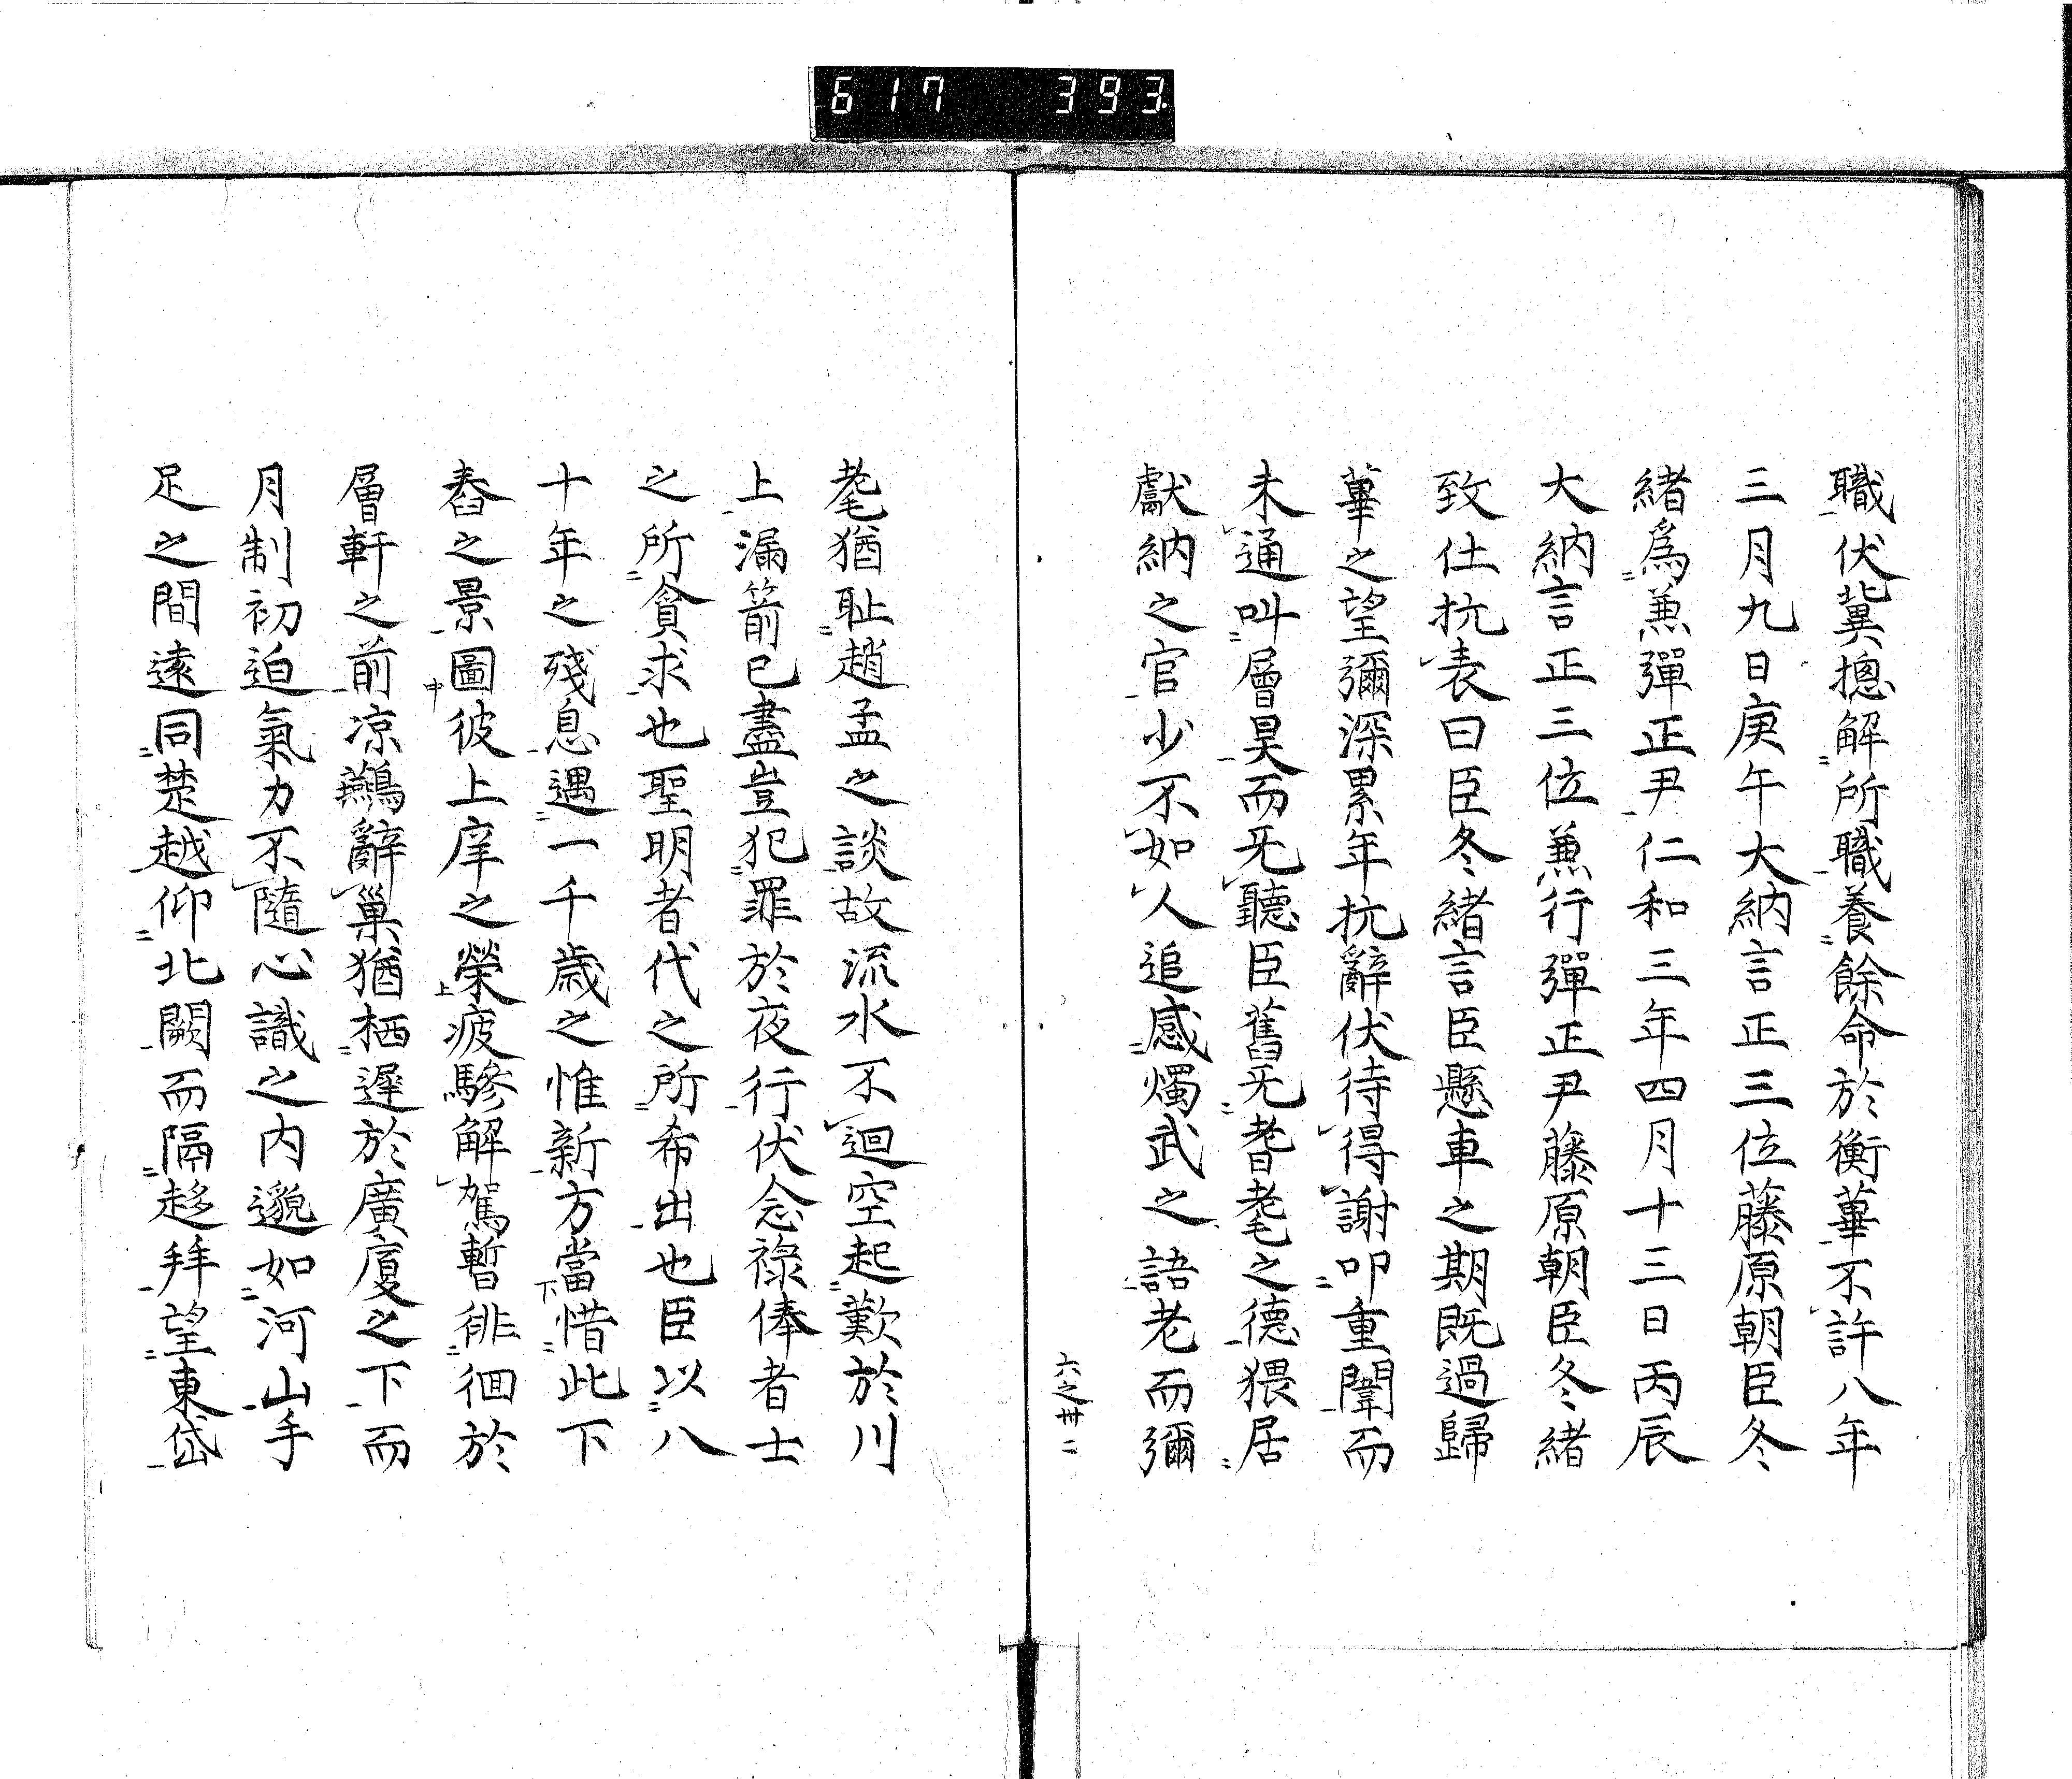 617 393
職伏冀摠解所職養餘命於衡蓽不許八年
三月九日庚午大納言正三位藤原朝臣冬
緒爲兼彈正尹仁和三年四月十三日丙辰
大納言正三位兼行彈正尹藤原朝臣冬緒
致仕抗表曰臣冬緒言臣懸車之期既過歸
蓽之望彌深累年抗辭伏待得謝叩重闈而
未通叫層昊而无聽臣舊无耆耄之德猥居
獻納之官少不如人追感燭武之語老而彌
六之卅二
耄猶耻趙孟之談故流水不迴空起歎於川
上漏箭已盡豈犯罪於夜行伏念祿俸者士
之所貪求也聖明者代之所希出也臣以八
十年之殘息遇一千歲之惟新方當惜此下
舂之景圖彼上庠之榮疲驂解駕暫徘徊於
層軒之前凉鷰辭巢猶栖遲於廣廈之下而
月制初迫氣力不隨心識之内邈如河山手
足之間遠同楚越仰北闕而隔趍拜望東岱